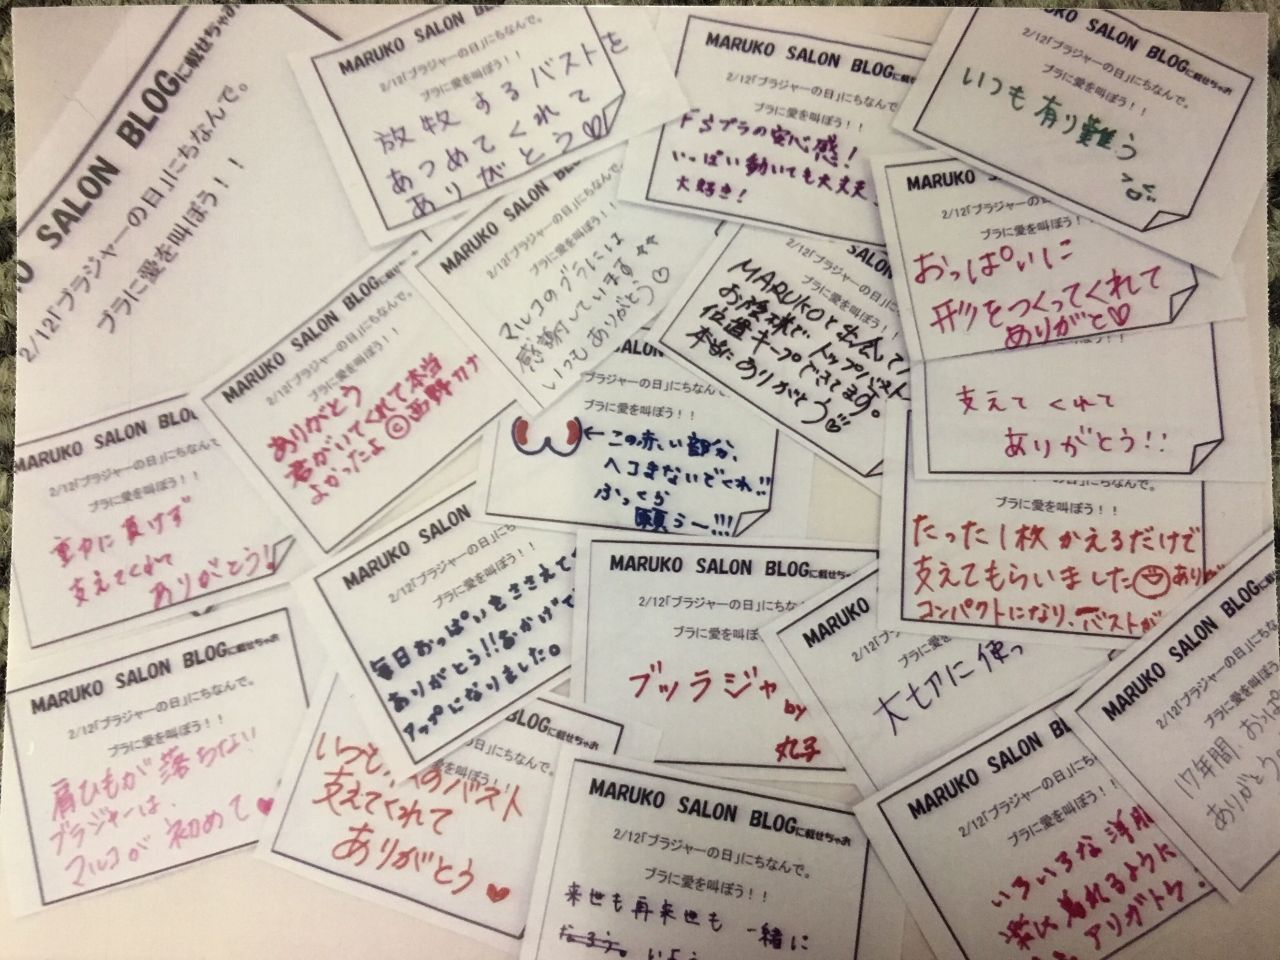 SALON BLOGに載せちゃお
2/12「ブラジャーの日」にちなんで。
ブラに愛を叫ぼう！！
MARUKO SALON BLOG
2/12「ブラジャーの日」にちなんで。
ブラに愛を叫ぼう！！
放牧するバストを
あつめてくれて
ありがとう♡
MARUKO SALON BLOGに載せちゃお
2/12「ブラジャーの日」にちなんで。
ブラに愛を叫ぼう！！
ブラの安心感！
いっぱい動いても大丈夫
大好き！
MARUKO SALON BLOGに載せちゃお
2/12「ブラジャーの日」にちなんで。
ブラに愛を叫ぼう！！
いつも有り難う
MARUKO SALON
2/12「ブラジャーの日
ブラに愛を叫ぼ
おっぱいに
形をつくってくれて
ありがと♡
MARUKO SALON BLO
2/12「ブラジャーの日」にちなんで。
ブラに愛を叫ぼう！！
マルコのブラには
感謝しています
いつもありがとう♡
SALON
2/12「ブラジャーの日
ブラに愛を叫ぼう！
MARUKOと出会して
お陰様でトップバスト
位置キープできてます。
本当にありがとう
支えてくれて
ありがとう!!
MARUKO SALON BLO
2/12「ブラジャーの日」
ブラに愛を叫ぼう！
ありがとう
君がいてくれて本当
よかったよ ©西野カナ
SALON BLO
ブラジャーの日」にちなんで。
ブラに愛を叫ぼう！！
←この赤い部分、
ヘコまないでくれ!!
ふっくら
願うー!!!
の日」にちなんで。
ブラに愛を叫ぼう！！
たった1枚かえるだけで
支えてもらいました
コンパクトになり、バストが
MARUKO SALON BLOG
2/12「ブラジャーの日」にちなんで
ブラに愛を叫ぼう！！
重力に負けず
支えてくれて
ありがとう!
MARUKO SALON
2/12「ブラジャーの日」にちな
ブラに愛を叫ぼう！！
毎日おっぱいをささえて
ありがとう!!おかげで
アップになりました。
MARUKO SALON BLOGに載せちゃお
2/12「ブラジャーの日」にちなん
ブラに愛を叫ぼ
ブッラジャ by
丸子
MARUKO
2/12「ブラジャ
ブラに愛
大切に使っ
MARUKO SALON BLOGに載せちゃお
2/12「ブラジャーの日」にちなんで。
ブラに愛を叫ぼう！！
肩ひもが落ちない
ブラジャーは、
マルコが初めて♥
BLOGに載せちゃお
にちなんで。
を叫ぼう！！
のバスト
支えてくれて
ありがとう♥
MARUKO SALON BLOGに載せちゃお
2/12「ブラジャーの日」にちなんで。
ブラに愛を叫ぼう！！
来世も再来世も一緒に
MARUKO SALON BLOG
2/12「ブラジャーの日」に
ブラに愛を叫ぼう！！
いろいろな洋服
楽しく着れるように
アリガトウ!
MARUKO SALON BLOGに載
2/12「ブラジャーの日」
ブラに愛を叫ぼ
17年間、おっぱ
ありがとう